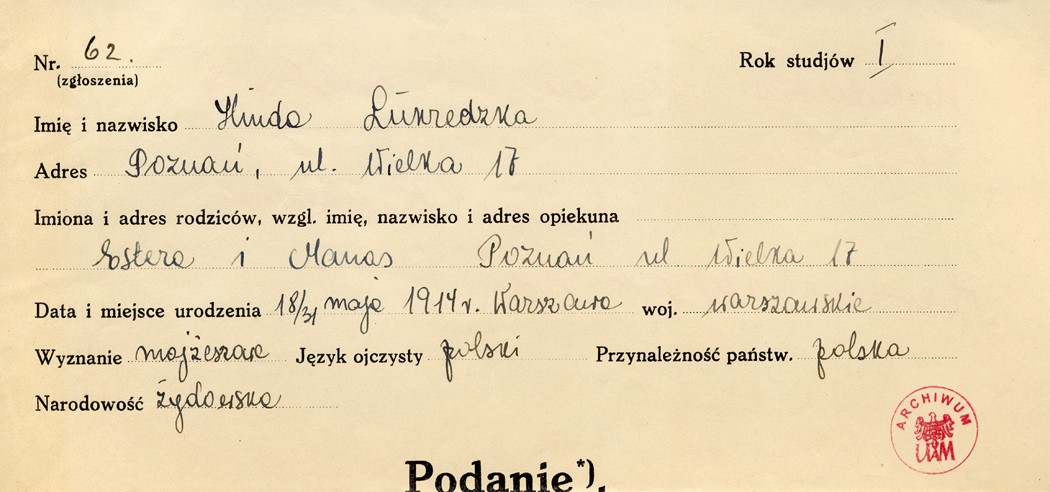 Nr. 62. Rok studjów I
(zgłoszenia)
Imię i nazwisko Hinda Łukrędzka
Adres Poznań, ul. Wielka 17
Imiona i adres rodziców, wzgl. imię, nazwisko i adres opiekuna
Estera i Manas Poznań ul Wielka 17
Data i miejsce urodzenia 18/31 maja 1914 r. Warszawa woj. warszawskie
Wyznanie mojżeszowe Język ojczysty polski Przynależność państw. polska
Narodowość żydowska
ARCHIWUM
UAM
Podanie*).